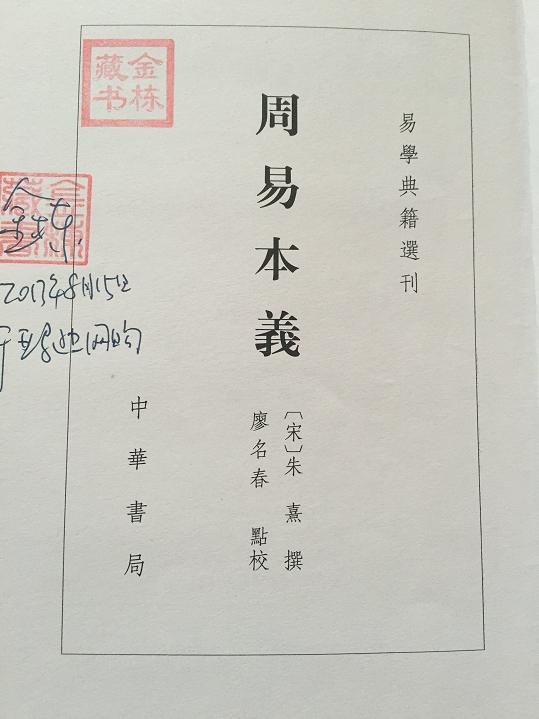 金栋
藏书
易學典籍選刊
周易本義
〔宋〕朱熹 撰
廖名春 點校
中華書局
金栋
2017年8月15日